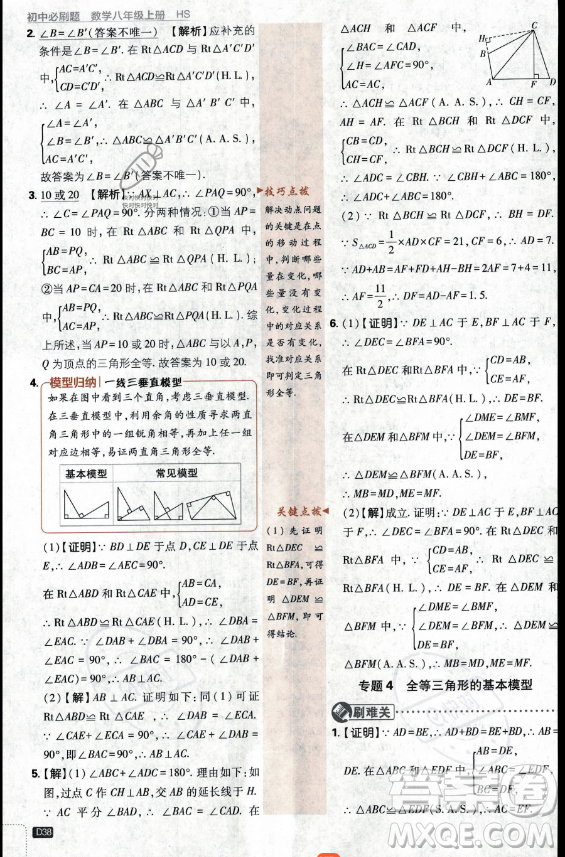 初中必刷题 数学八年级上册 HS
∠B=∠B′(答案不唯一) 【解析】应补充的
条件是∠B=∠B′. 在 Rt△ACD 与 Rt△A′C′D′
中,{AC=A′C′, CD=C′D′, ∴ Rt△ACD≌Rt△A′C′D′(H. L.),
∴ ∠A = ∠A′. 在 △ABC 与 △A′B′C′ 中,
{∠A=∠A′,
∠B=∠B′, ∴ △ABC≌△A′B′C′(A. A. S.),
AC=A′C′,
故答案为∠B=∠B′(答案不唯一).
3. 10 或 20 【解析】∵ AX⊥AC,∴ ∠PAQ=90°,
∴ ∠C=∠PAQ=90°. 分两种情况:①当 AP=
BC = 10 时,在 Rt△ABC 和 Rt△QPA 中,
{AB=PQ,
BC=PA, ∴ Rt△ABC≌Rt△QPA(H. L.);
②当 AP=CA=20 时,在 Rt△ABC 和 Rt△PQA
中,{AB=PQ, AC=PA, ∴ Rt△ABC≌Rt△PQA(H. L.). 综
上所述,当 AP=10 或 20 时,以点 A,P,
Q 为顶点的三角形全等. 故答案为 10 或 20.
4. 模型归纳 一线三垂直模型
如果在图中看到三个直角,考虑三垂直模型.
在三垂直模型中,利用余角的性质寻求两直
角三角形中的一组锐角相等,再加上一组边
相等,易证两直角三角形全等.
基本模型 常见模型
(1)【证明】∵ BD⊥DE 于点 D,CE⊥DE 于点
E,∴ ∠ADB=∠AEC=90°.
在 Rt△ABD 和 Rt△CAE 中,{AB=CA, AD=CE,
∴ Rt△ABD≌Rt△CAE(H. L.),∴ ∠DBA=
∠EAC. ∵ ∠DAB + ∠DBA = 90°, ∴ ∠DAB +
∠EAC = 90°, ∴ ∠BAC = 180° - (∠DAB +
∠EAC)=90°,∴ AB⊥AC.
(2)【解】AB⊥AC. 证明如下:同(1)可证
Rt△ABD≌Rt△CAE,∴ ∠DAB=∠ECA,∠DBA=
∠EAC. ∵ ∠CAE+∠ECA=90°,∴ ∠CAE+
∠DAB=90°,即∠BAC=90°,∴ AB⊥AC.
5.【解】(1)∠ABC+∠ADC=180°. 理由如下:如
图,过点 C 作 CH⊥AB,交 AB 的延长线于 H.
∵ AC 平分∠BAD,∴ ∠BAC = ∠DAC. 在
D38
技巧点拨
解决动点问题
的关键是在点
的移动过程
中,判断哪些
量在变化,哪
些量没有变
化,变化过程
中的对应关系
是否有变化,
找准对应关系
即可判定三角
形全等.
关键点拨
(1)先证明
Rt△DEC ≌
Rt△BFA,可得
DE=BF,再证
明 △DEM ≌
△BFM,即可
得结论.
△ACH 和 △ACF 中,
{∠BAC=∠CAD,
∠H=∠AFC=90°,
AC=AC,
∴ △ACH ≌ △ACF (A. A. S.), ∴ CH = CF,
AH = AF. 在 Rt△BCH 和 Rt△DCF 中,
{CB=CD,
CH=CF, ∴ Rt△BCH≌Rt△DCF(H. L.),
∴ ∠ADC = ∠CBH. ∵ ∠CBH + ∠ABC = 180°,
∴ ∠ADC+∠ABC=180°.
(2) ∵ Rt△BCH ≌ Rt△DCF, ∴ BH = DF.
∵ S△ACD=1/2×AD×CF=21,CF=6,∴ AD=7.
∵ AD+AB=AF+FD+AH-BH=2AF,AB=4,
∴ AF=11/2,∴ BH=DF=AD-AF=1.5.
6. (1)【证明】∵ DE⊥AC 于 E,BF⊥AC 于 F,
∴ ∠DEC=∠BFA=90°.
在 Rt△DEC 和 Rt△BFA 中,{CD=AB, CE=AF,
∴ Rt△DEC≌Rt△BFA(H. L.),∴ DE=BF.
在△DEM 和△BFM 中,{∠DME=∠BMF, ∠DEM=∠BFM, DE=BF,
∴ △DEM≌△BFM(A. A. S.),
∴ MB=MD,ME=MF.
(2)【解】成立. 证明:∵ DE⊥AC 于 E,BF⊥
AC 于 F,∴ ∠DEC=∠BFA=90°. 在 Rt△DEC 和
Rt△BFA 中,{CD=AB, CE=AF, ∴ Rt△DEC ≌
Rt△BFA(H. L.),∴ DE=BF. 在△DEM 和
△BFM 中,{∠DME=∠BMF, ∠DEM=∠BFM, DE=BF, ∴ △DEM≌
△BFM(A. A. S.),∴ MB=MD,ME=MF.
专题 4 全等三角形的基本模型
刷难关
1.【证明】∵ AD=BE,∴ AD+BD=BE+BD,∴ AB=
DE. 在△ABC 与△EDF 中,
∴ △ABC≌△EDF(S.